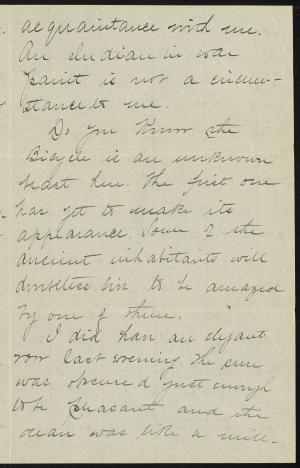 acquaintance with me.
An Indian in war
paint is not a circum-
stance to me.
Do you know the
Bicycle is an unknown
beast here. The first one
has yet to make its
appearance. Some of the
ancient inhabitants will
doubtless live to be amazed
by one of them.
I did have an elegant
row last evening, the sun
was obscured just enough
to be pleasant and the
ocean was like a mill-